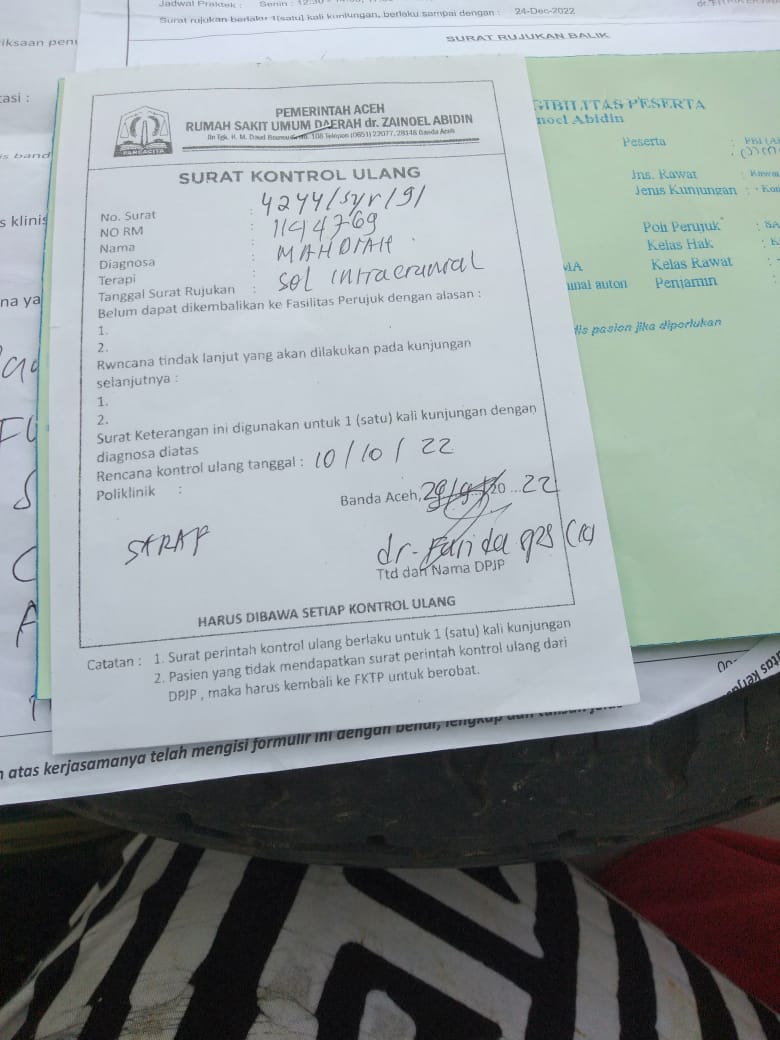 Jadwal Praktek : Senin : 12:30
Surat rujukan berlaku 1(satu) kali kunjungan, berlaku sampai dengan : 24-Dec-2022
SURAT RUJUKAN BALIK
PEMERINTAH ACEH
RUMAH SAKIT UMUM DAERAH dr. ZAINOEL ABIDIN
Jln Tgk. H. M. Daud Beureueh No. 108 Telepon (0651) 22077, 28148 Banda Aceh
PANCACITA
SURAT KONTROL ULANG
No. Surat : 4244/syr/9/
NO RM : 1144769
Nama : MAHDIAH
Diagnosa : SOL intracranial
Terapi :
Tanggal Surat Rujukan :
Belum dapat dikembalikan ke Fasilitas Perujuk dengan alasan :
1.
2.
Rwncana tindak lanjut yang akan dilakukan pada kunjungan
selanjutnya :
1.
2.
Surat Keterangan ini digunakan untuk 1 (satu) kali kunjungan dengan
diagnosa diatas
Rencana kontrol ulang tanggal : 10/10/22
Poliklinik :
Banda Aceh, 20 22
SARAF
dr. Farida
Ttd dan Nama DPJP
HARUS DIBAWA SETIAP KONTROL ULANG
Catatan : 1. Surat perintah kontrol ulang berlaku untuk 1 (satu) kali kunjungan
2. Pasien yang tidak mendapatkan surat perintah kontrol ulang dari
DPJP , maka harus kembali ke FKTP untuk berobat.
GIBILITAS PESERTA
noel Abidin
Peserta :
Jns. Rawat :
Jenis Kunjungan :
Poli Perujuk :
Kelas Hak :
Kelas Rawat :
Penjamin :
dis pasien jika diperlukan
atas kerjasamanya telah mengisi formulir ini dengan benar, lengkap dan